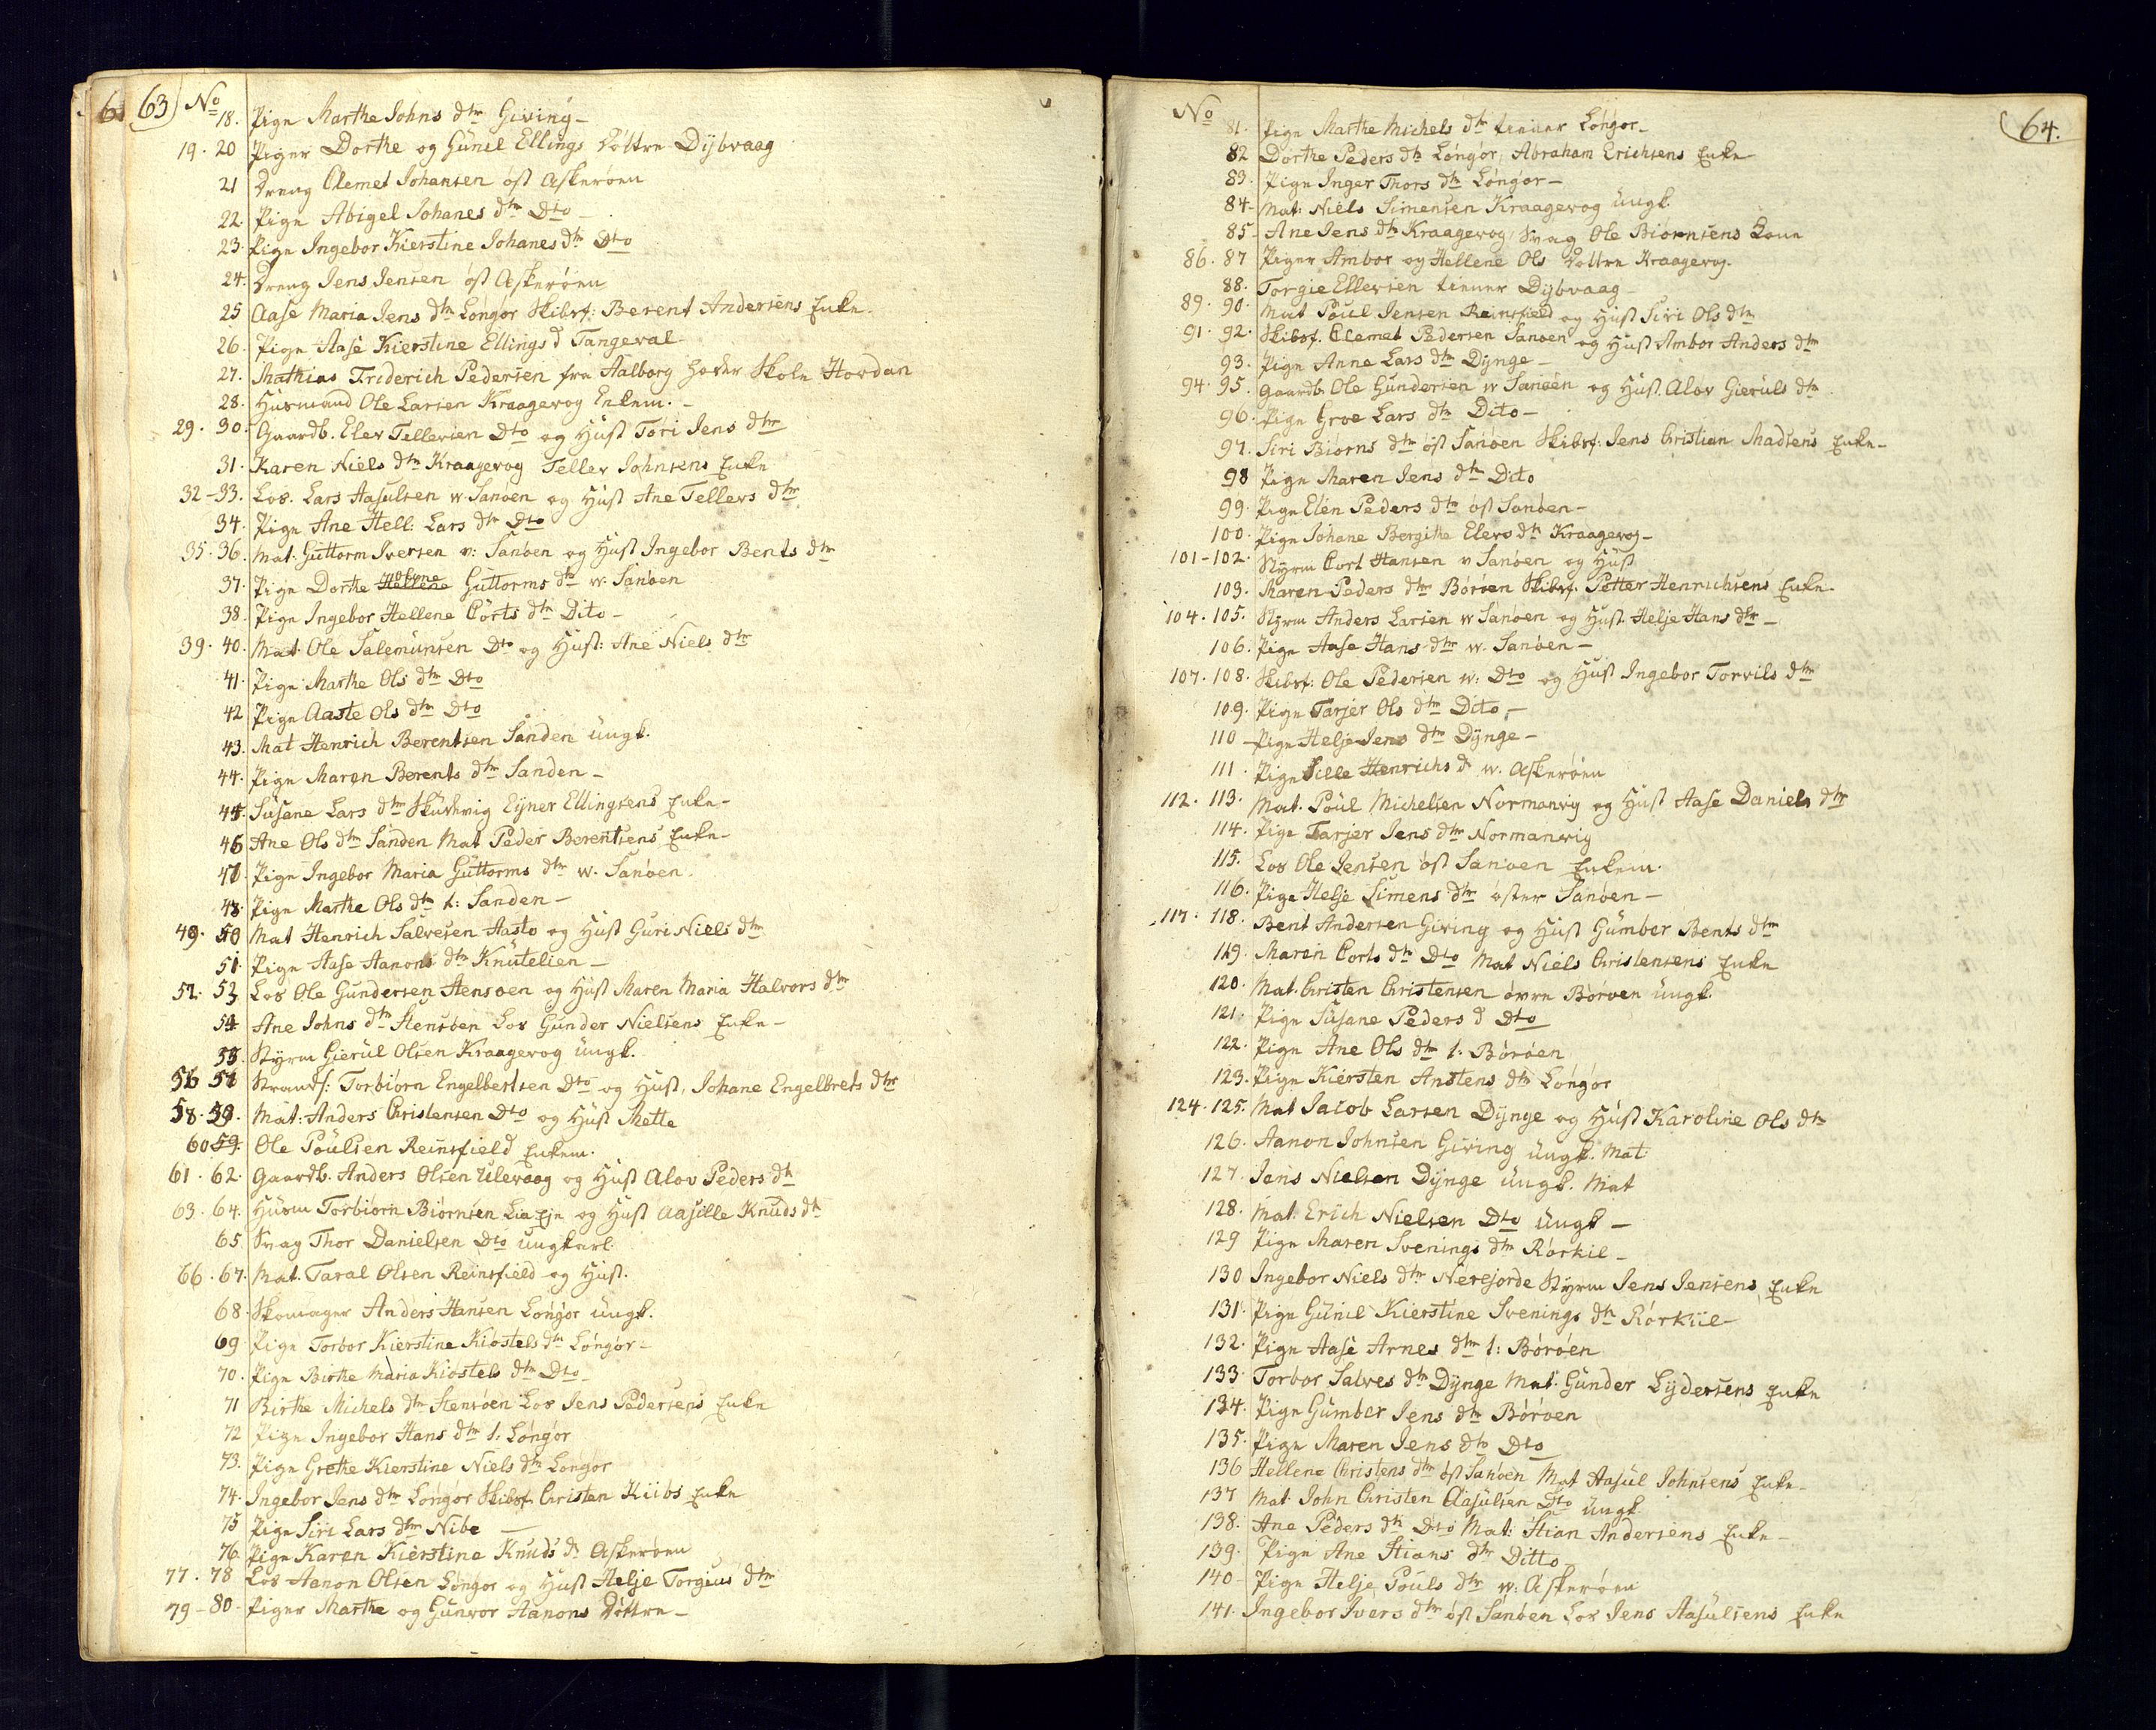 6 63 No
18. Pige Marthe Johns dtr Giving
19. 20 Piger Dorthe og Gunil Ellings Döttre Dybvaag
21 Dreng Clemet Johansen öst Askeröen
22. Pige Abigel Johanes dtr Dto
23. Pige Ingebor Kierstine Johanes dtr Dto
24. Dreng Jens Jensen öst Askeröen
25 Aase Maria Jens dtr Löngör Skibsf: Berent Andersens Enke.
26. Pige Aase Kierstine Ellings d Tangeval
27. Mathias Friderich Pedersen fra Aalborg Skole Hordan
28. Husmand Ole Larsen Kraagevog Enkem.
29. 30. Gaardb. Elev Tellevsen Dto og Hust Tori Jens dtr
31. Karen Niels dtr Kraagevog Tellev Johnsens Enke
32-33. Los. Lars Aasulsen w. Sanöen og Hust Ane Tellevs dtr
34. Pige Ane Hell. Lars dtr Dto
35. 36. Mat: Guttorm Iversen v: Sanöen og Hust Ingebor Bents dtr
37. Pige Dorthe Hellene Guttorms dtr w. Sanöen
38. Pige Ingebor Hellene Corts dtr Dito
39. 40. Mat. Ole Salemunsen Dto og Hust: Ane Niels dtr
41. Pige Marthe Ols dtr Dto
42 Pige Aaste Ols dtr Dto
43. Mat Henrich Berentsen Sanden ungk.
44. Pige Maren Berents dtr Sanden
45. Susane Lars dtr Skutevig Ejner Ellingsens Enke
46 Ane Ols dtr Sanden Mat Peder Berentsens Enke
47. Pige Ingebor Maria Guttorms dtr w. Sanöen.
48. Pige Marthe Ols dtr t: Sanden
49. 50 Mat Henrich Salvesen Aasto og Hust Guri Niels dtr
51. Pige Aase Aanons dtr Knutelien
52. 53 Los Ole Gundersen Stensöen og Hust Maren Maria Halvors dtr
54 Ane Johns dtr Stensöen Los Gunder Nielsens Enke
55. Styrm Gierul Olsen Kraagevog ungk.
56 57 Strands: Torbiorn Engelbertsen Dto og Hust, Johane Engelbrets dtr
58. 59. Mat: Anders Christensen Dto og Hust Mette
60 59. Ole Poulsen Reinsfield Enkem.
61. 62. Gaardb. Anders Olsen Ulevaag og Hust Alov Peders dtr
63. 64. Husm Torbiörn Biörnsen Lia Eje og Hust Aasille Knuds dtr
65. Svag Thor Danielsen Dto ungkarl.
66. 67. Mat. Taral Olsen Reinsfield og Hust.
68. Skomager Anders Hansen Löngör ungk.
69 Pige Torbor Kierstine Kiostels dtr Löngör
70. Pige Birthe Maria Kiostels dtr Dto
71 Birthe Michels dtr Stensöen Los Jens Pedersens Enke
72 Pige Ingebor Hans dtr t: Löngör
73. Pige Grethe Kierstine Niels dtr Longor
74. Ingebor Jens dtr Longor Skibsf. Christen Kiibs Enke
75 Pige Siri Lars dtr Nibe
76. Pige Karen Kierstine Knuds dr Askeröen
77. 78 Los Aanon Olsen Löngör og Hust Helje Torgius dtr
79-80. Piger Marthe og Gunvor Aanons Döttre
No 64.
81. Pige Marthe Michels dtr tiener Löngör
82 Dorthe Peders dtr Löngör, Abraham Erichsens Enke
83. Pige Inger Thors dtr Löngör
84. Mat: Niels Simensen Kraagevog ungk.
85 Ane Jens dtr Kraagevog, Svag Ole Biörnsens Kone
86. 87 Piger Ambor og Hellene Ols Döttre Kraagevog.
88. Torgie Ellevsen tiener Dybvaag
89. 90. Mat Poul Jensen Reinsfield og Hust Siri Ols dtr
91. 92. Skibsf. Clemet Pedersen Sanöen og Hust Ambor Anders dtr
93. Pige Anne Lars dtr Dynge
94. 95. Gaardb. Ole Gundersen w Sanöen og Hust. Alov Gieruls dtr
96. Pige Groe Lars dtr Dito
97. Siri Biörns dtr öst Sanöen Skibsf: Jens Christian Madsens Enke
98 Pige Maren Jens dtr Dito
99. Pige Elen Peders dtr öst Sanöen
100. Pige Johane Bergithe Elevs dtr Kraagevog
101-102. Styrm Cort Hansen v Sanöen og Hust
103. Maren Peders dtr Böröen Skibsf. Petter Henrichsens Enke
104. 105. Styrm Anders Larsen w Sanöen og Hust Helje Hans dtr
106. Pige Aase Hans dtr w. Sanöen
107. 108. Skibsf: Ole Pedersen w: Dto og Hust Ingebor Torvils dtr
109. Pige Tarjer Ols dtr Dito
110 Pige Helje Jens dtr Dynge
111. Pige Sille Henrichs d w. Askeröen
112. 113. Mat. Poul Michelsen Normanvig og Hust Aase Daniels dtr
114. Pige Tarjer Jens dtr Normanvig
115. Los Ole Jensen öst Sanöen Enkem.
116. Pige Helje Simens dtr öster Sanöen
117. 118. Bent Andersen Giving og Hust Gumber Bents dtr
119. Maren Corts dtr Dto Mat Niels Christensens Enke
120. Mat. Christen Christensen övre Böröen ungk.
121. Pige Susane Peders d Dto
122. Pige Ane Ols dtr t. Böröen
123. Pige Kiersten Anstens dtr Löngör
124. 125. Mat Jacob Larsen Dynge og Hust Karoline Ols dtr
126. Aanon Johnsen Giving ungk. Mat.
127. Jens Nielsen Dynge ungk. Mat
128. Mat. Erich Nielsen Dto ungk
129 Pige Maren Svenings dtr Rörkil
130 Ingebor Niels dtr Nerejorde Styrm Jens Jensens Enke
131. Pige Gunil Kierstine Svenings dtr Rörkiil
132. Pige Aase Arnes dtr t: Böröen
133. Torbor Salves dtr Dynge Mat. Gunder Lydersens Enke
134. Pige Gumber Jens dtr Böröen
135. Pige Maren Jens dtr Dto
136 Hellene Christens dtr öst Sanöen Mat Aasul Johnsens Enke
137 Mat. John Christen Aasulsen Dto ungk.
138. Ane Peders dtr Dto Mat: Stian Andersens Enke
139. Pige Ane Stians dtr Ditto
140 Pige Helje Pouls dtr w: Askeröen
141. Ingebor Ivers dtr öst Sanöen Los Jens Aasulsens Enke